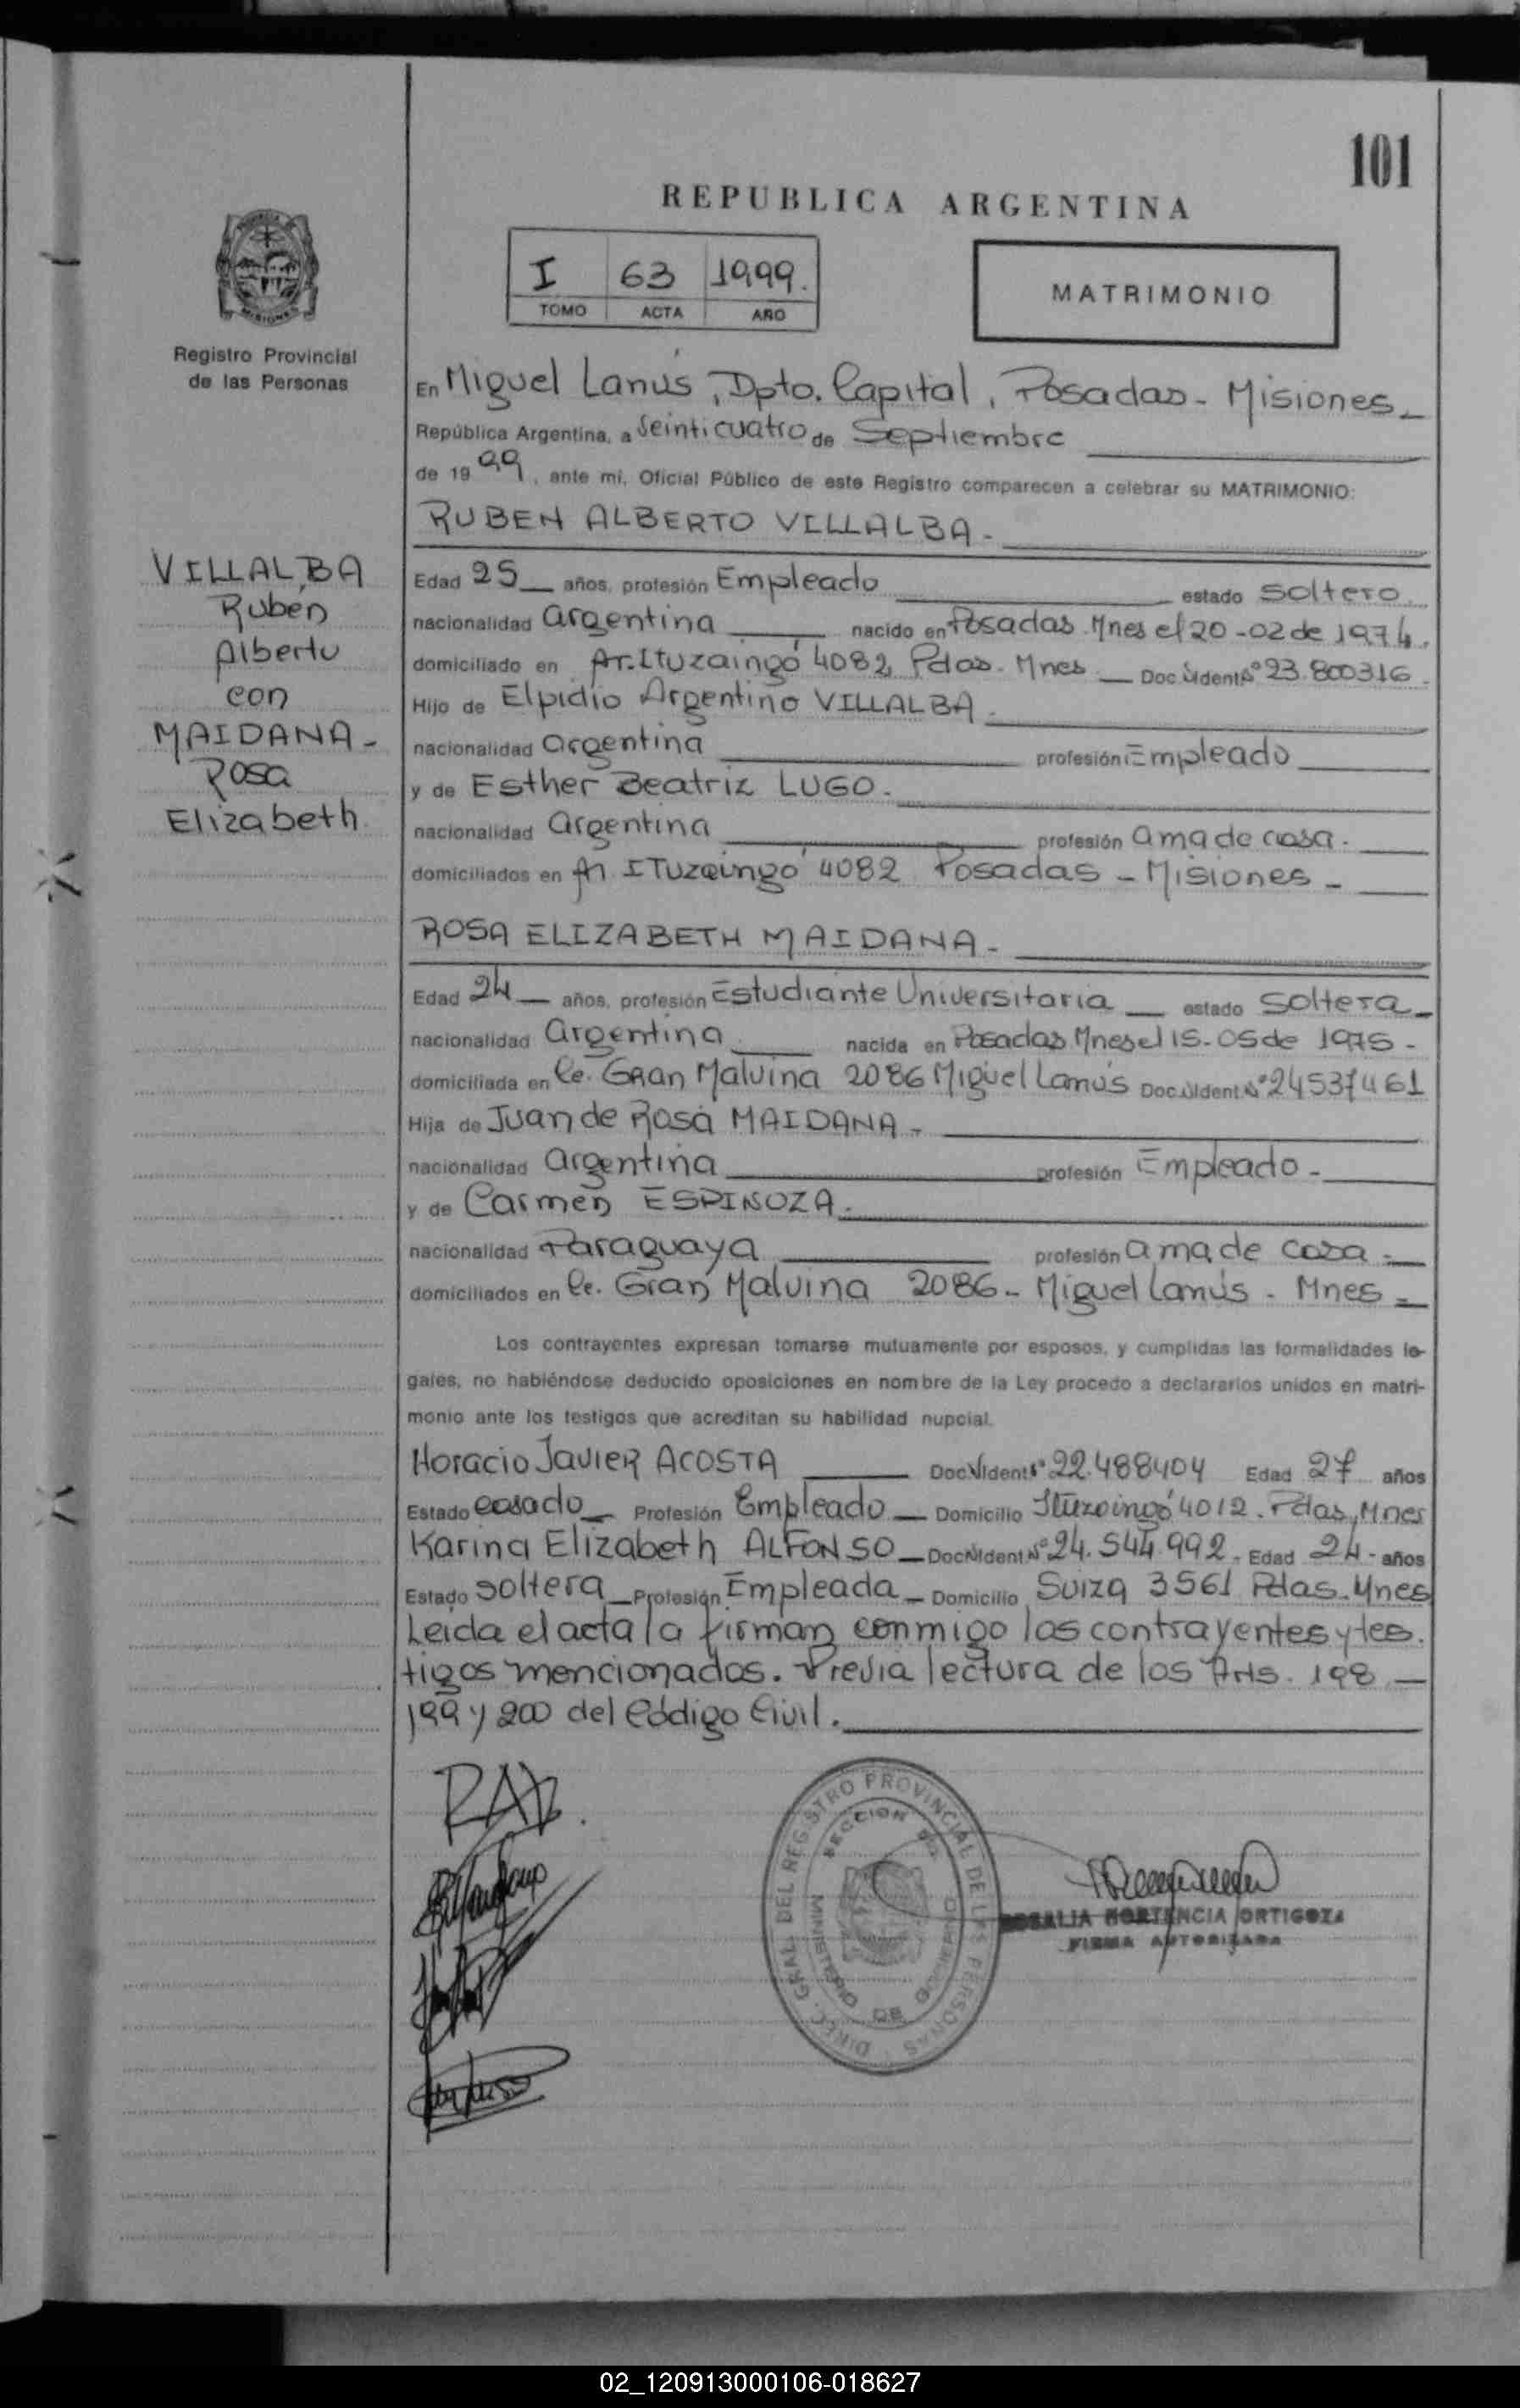 101
REPUBLICA ARGENTINA
I 63 1999.
TOMO ACTA AÑO
MATRIMONIO
Registro Provincial
de las Personas
En Miguel Lanús, Dpto. Capital, Posadas - Misiones -
República Argentina, a Veinticuatro de Septiembre
de 19 99, ante mi, Oficial Público de este Registro comparecen a celebrar su MATRIMONIO:
RUBEN ALBERTO VILLALBA -
VILLALBA
Rubén
Alberto
con
MAIDANA -
Rosa
Elizabeth
Edad 25 años, profesión Empleado estado soltero.
nacionalidad argentina nacido en Posadas Mnes el 20-02 de 1974.
domiciliado en Av. Ituzaingó 4082 Pdas. Mnes Doc. Ident. Nº 23.800316.
Hijo de Elpidio Argentino VILLALBA -
nacionalidad argentina profesión Empleado
y de Esther Beatriz LUGO -
nacionalidad argentina profesión ama de casa.
domiciliados en Av ITuzaingó 4082 Posadas - Misiones -
ROSA ELIZABETH MAIDANA -
Edad 24 años, profesión Estudiante Universitaria estado soltera -
nacionalidad argentina nacida en Posadas Mnes el 15-05 de 1975 -
domiciliada en Ce. Gran Malvina 2086 Miguel Lanús Doc. Ident. Nº 24537461
Hija de Juan de Rosa MAIDANA -
nacionalidad argentina profesión Empleado -
y de Carmen ESPINOZA.
nacionalidad Paraguaya profesión ama de casa -
domiciliados en Ce. Gran Malvina 2086 - Miguel Lanús - Mnes -
Los contrayentes expresan tomarse mutuamente por esposos, y cumplidas las formalidades le-
gales, no habiéndose deducido oposiciones en nombre de la Ley procedo a declararlos unidos en matri-
monio ante los testigos que acreditan su habilidad nupcial.
Horacio Javier ACOSTA Doc. Ident. Nº 22.488404 Edad 27 años
Estado casado Profesión Empleado Domicilio Ituzaingó 4012. Pdas, Mnes
Karina Elizabeth ALFONSO Doc. Ident. Nº 24.544.992 - Edad 24 - años
Estado soltera Profesión Empleada Domicilio Suiza 3561 Pdas. Mnes
Leida el acta la firman conmigo los contrayentes y tes.
tigos mencionados. Previa lectura de los Arts. 198 -
199 y 200 del Código Civil.
DIREC. GRAL. DEL REGISTRO PROVINCIAL DE LAS PERSONAS
MINISTERIO DE GOBIERNO
ROSALIA HORTENCIA ORTIGOZA
FIRMA AUTORIZADA
02_120913000106-018627